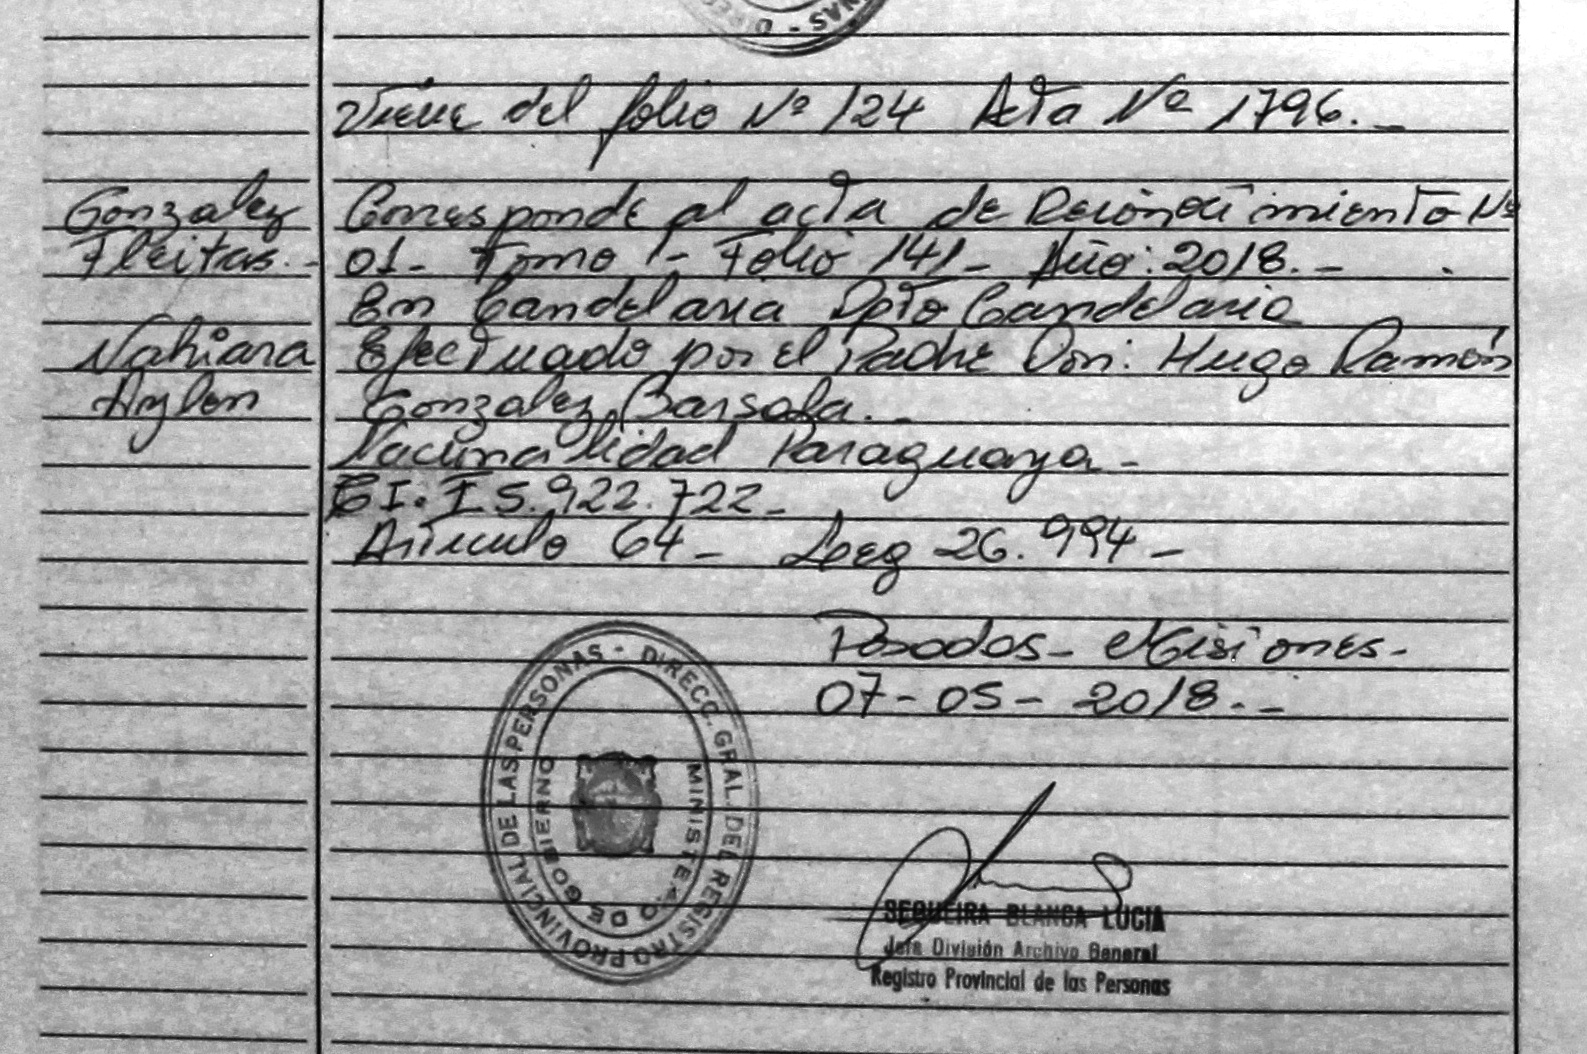 Viene del folio Nº 124 Acta Nº 1796.-
Gonzalez
Fleitas.-
Nahiara
Aylen
Corresponde al acta de Reconocimiento Nº
01- Tomo 1- Folio 141- Año: 2018.-
En Candelaria Dpto Candelaria
Efectuado por el Padre Don: Hugo Ramón
Gonzalez Barsola.-
Nacionalidad Paraguaya-
CI. I 5.922.722-
Artículo 64- Ley 26.994-
Posadas- Misiones-
07-05-2018.-
DIRECC. GRAL. DEL REGISTRO PROVINCIAL DE LAS PERSONAS -
MINISTERIO DE GOBIERNO
SEQUEIRA BLANCA LUCIA
Jefa División Archivo General
Registro Provincial de las Personas